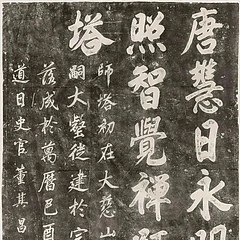 唐慧日永明
照智覺禪師
塔
師塔初在大慈山
嗣大壑徙建於宗
落成於萬曆己酉
道日史官董其昌